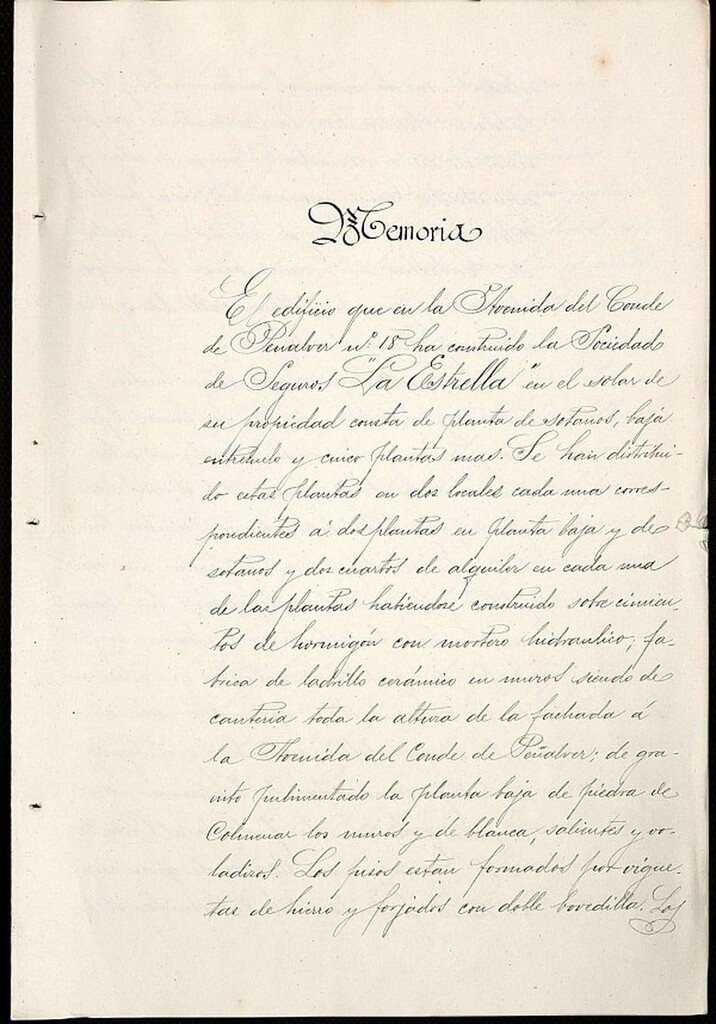 Memoria
El edificio que en la Avenida del Conde
de Peñalver nº. 18 ha construido la Sociedad
de Seguros "La Estrella" en el solar de
su propiedad consta de planta de sotanos, baja
entresuelo y cinco plantas mas. Se han distribui-
do estas plantas en dos locales cada una corres-
pondientes á dos plantas en planta baja y de
sotanos y dos cuartos de alquiler en cada una
de las plantas habiendose construido sobre cimien-
tos de hormigón con mortero hidraulico; fa-
brica de ladrillo cerámico en muros siendo de
canteria toda la altura de la fachada á
la Avenida del Conde de Peñalver; de gra-
nito pulimentado la planta baja de piedra de
Colmenar los muros y de blanca, salientes y vo-
ladizos. Los pisos estan formados por vigue-
tas de hierro y forjados con doble bovedilla. Los